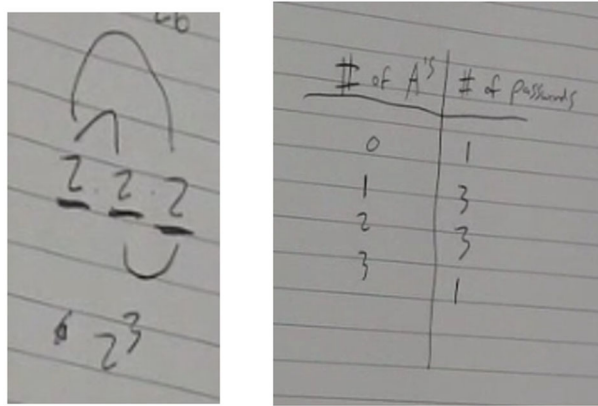 2 · 2 · 2
2³
# of A's # of passwords
0 1
1 3
2 3
3 1